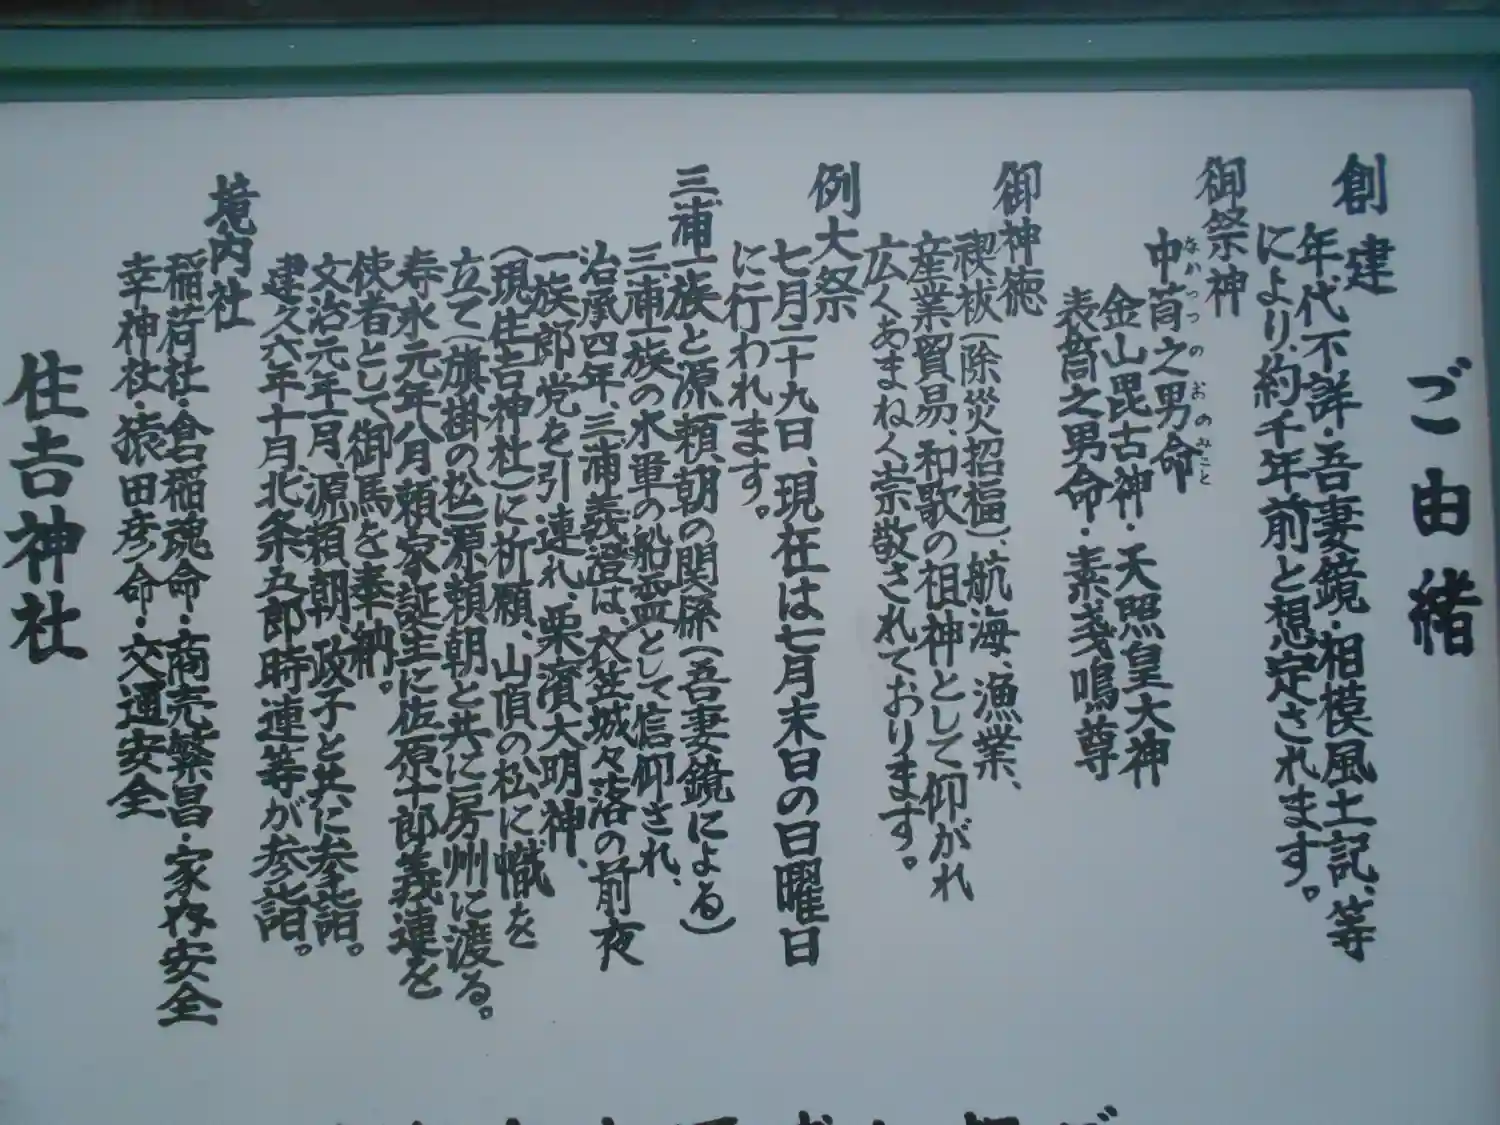 ご由緒
創建
年代不詳・吾妻鏡・相模風土記、等
により、約千年前と想定されます。
御祭神
中筒之男命
なかつつのおのみこと
金山毘古神・天照皇大神
表筒之男命・素戔鳴尊
御神徳
禊祓(除災招福)、航海、漁業、
産業貿易、和歌の祖神として仰がれ
広くあまねく崇敬されております。
例大祭
七月二十九日、現在は七月末日の日曜日
に行われます。
三浦一族と源頼朝の関係(吾妻鏡による)
三浦一族の水軍の船霊として信仰され、
治承四年、三浦義澄は、衣笠城々落の前夜
一族郎党を引連れ、栗濱大明神、
(現住吉神社)に祈願、山頂の松に幟を
立て(旗掛の松)源頼朝と共に房州に渡る。
寿永元年八月、頼家誕生に佐原十郎義連を
使者として御馬を奉納。
文治元年一月、源頼朝、政子と共に参詣。
建久六年十月、北条五郎時連等が参詣。
境内社
稲荷社・倉稲魂命・商売繁昌・家内安全
幸神社・猿田彦命・交通安全
住吉神社